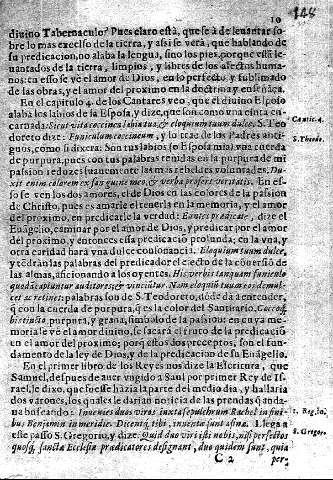 10
148
diuino Tabernaculo? Pues claro está, que se â de leuantar so-
bre lo mas excelso de la tierra, y assi se verá, que hablando de
su predicacion, no alaba la lengua, sino los pies, porque está le-
uantados de la tierra, limpios, y libres de los afectos huma-
nos: en esso se vè el amor de Dios, en lo perfecto, y sublimado
de las obras, y el amor del proximo en la doctrina y enseñãça.
En el capitulo 4. de los Cantares veo, que el diuino Esposo
alaba los labios de la Esposa, y dize, que son como vna cinta en-
carnada: Sicut vitta coccinea labia tua, & eloquium tuum dulce. S. Teo-
Cantic. 4.
doreto dize: Funiculum coccineum, y lo trae de los Padres anti-
S. Theodo.
guos, como si dixera: Son tus labios (o Esposa mia) vna cuerda
de purpura, pues con tus palabras teñidas en la purpura de mi
passion reduzes suauemente las mas rebeldes voluntades. Du-
xit enim colorem ex sanguine meo, & verba profert veritatis. En es-
so se ven los dos amores, el de Dios en las colores de la passion
de Christo, pues es amarle el tenerla en la memoria, y el amor
del proximo, en predicarle la verdad: Euntes predicate, dize el
Euãgelio, caminar por el amor de Dios, y predicar por el amor
del proximo, y entonces essa predicacion profunda; en la vna, y
otra caridad hará vna dulce consonancia. Eloquium tuum dulce,
y tẽdrán las palabras del predicador el efecto de la cõuersió de
las almas, aficionando a los oyentes. His verbis tanquam funiculo
quodã capiuntur auditores, & vinciuntur. Nam eloquiũ tuum eos demul-
cet ac retinet: palabras son de S. Teodoreto, dõde dá a entender,
q̃ con la cuerda de purpura, q̃ es la color del Santuario, Coccoq̃
bis tincto, purpura, y grana, simbolo de la passion: en cuya me-
moria se vè el amor diuino, se sacará el fruto de la predicació
en el amor del proximo; porq̃ estos dos preceptos, son el fun-
damento de la ley de Dios, y de la predicacion de su Euãgelio.
En el primer libro de los Reyes nos dize la Escritura, que
Samuel, despues de auer vngido a Saul por primer Rey de Is-
rael, le dixo, que fuesse hàzia la parte del medio dia, y hallaria
dos varones, los quales le darian noticia de las prendas q̃ anda-
na buscando: Inuenies duos viros iuxta sepulchrum Rachel in fini-
1. Reg. 10.
bus Beniamin in meridie. Dicentq́; tibi, inuente sunt asinæ. Llega a
este passo S. Gregorio, y dize: Quid duo viri isti nobis, nisi perfectos
S. Gregor.
quosq́; sanctæ Ecclesiæ prædicatores designant, duo quidem sunt, quia
C 2
per.